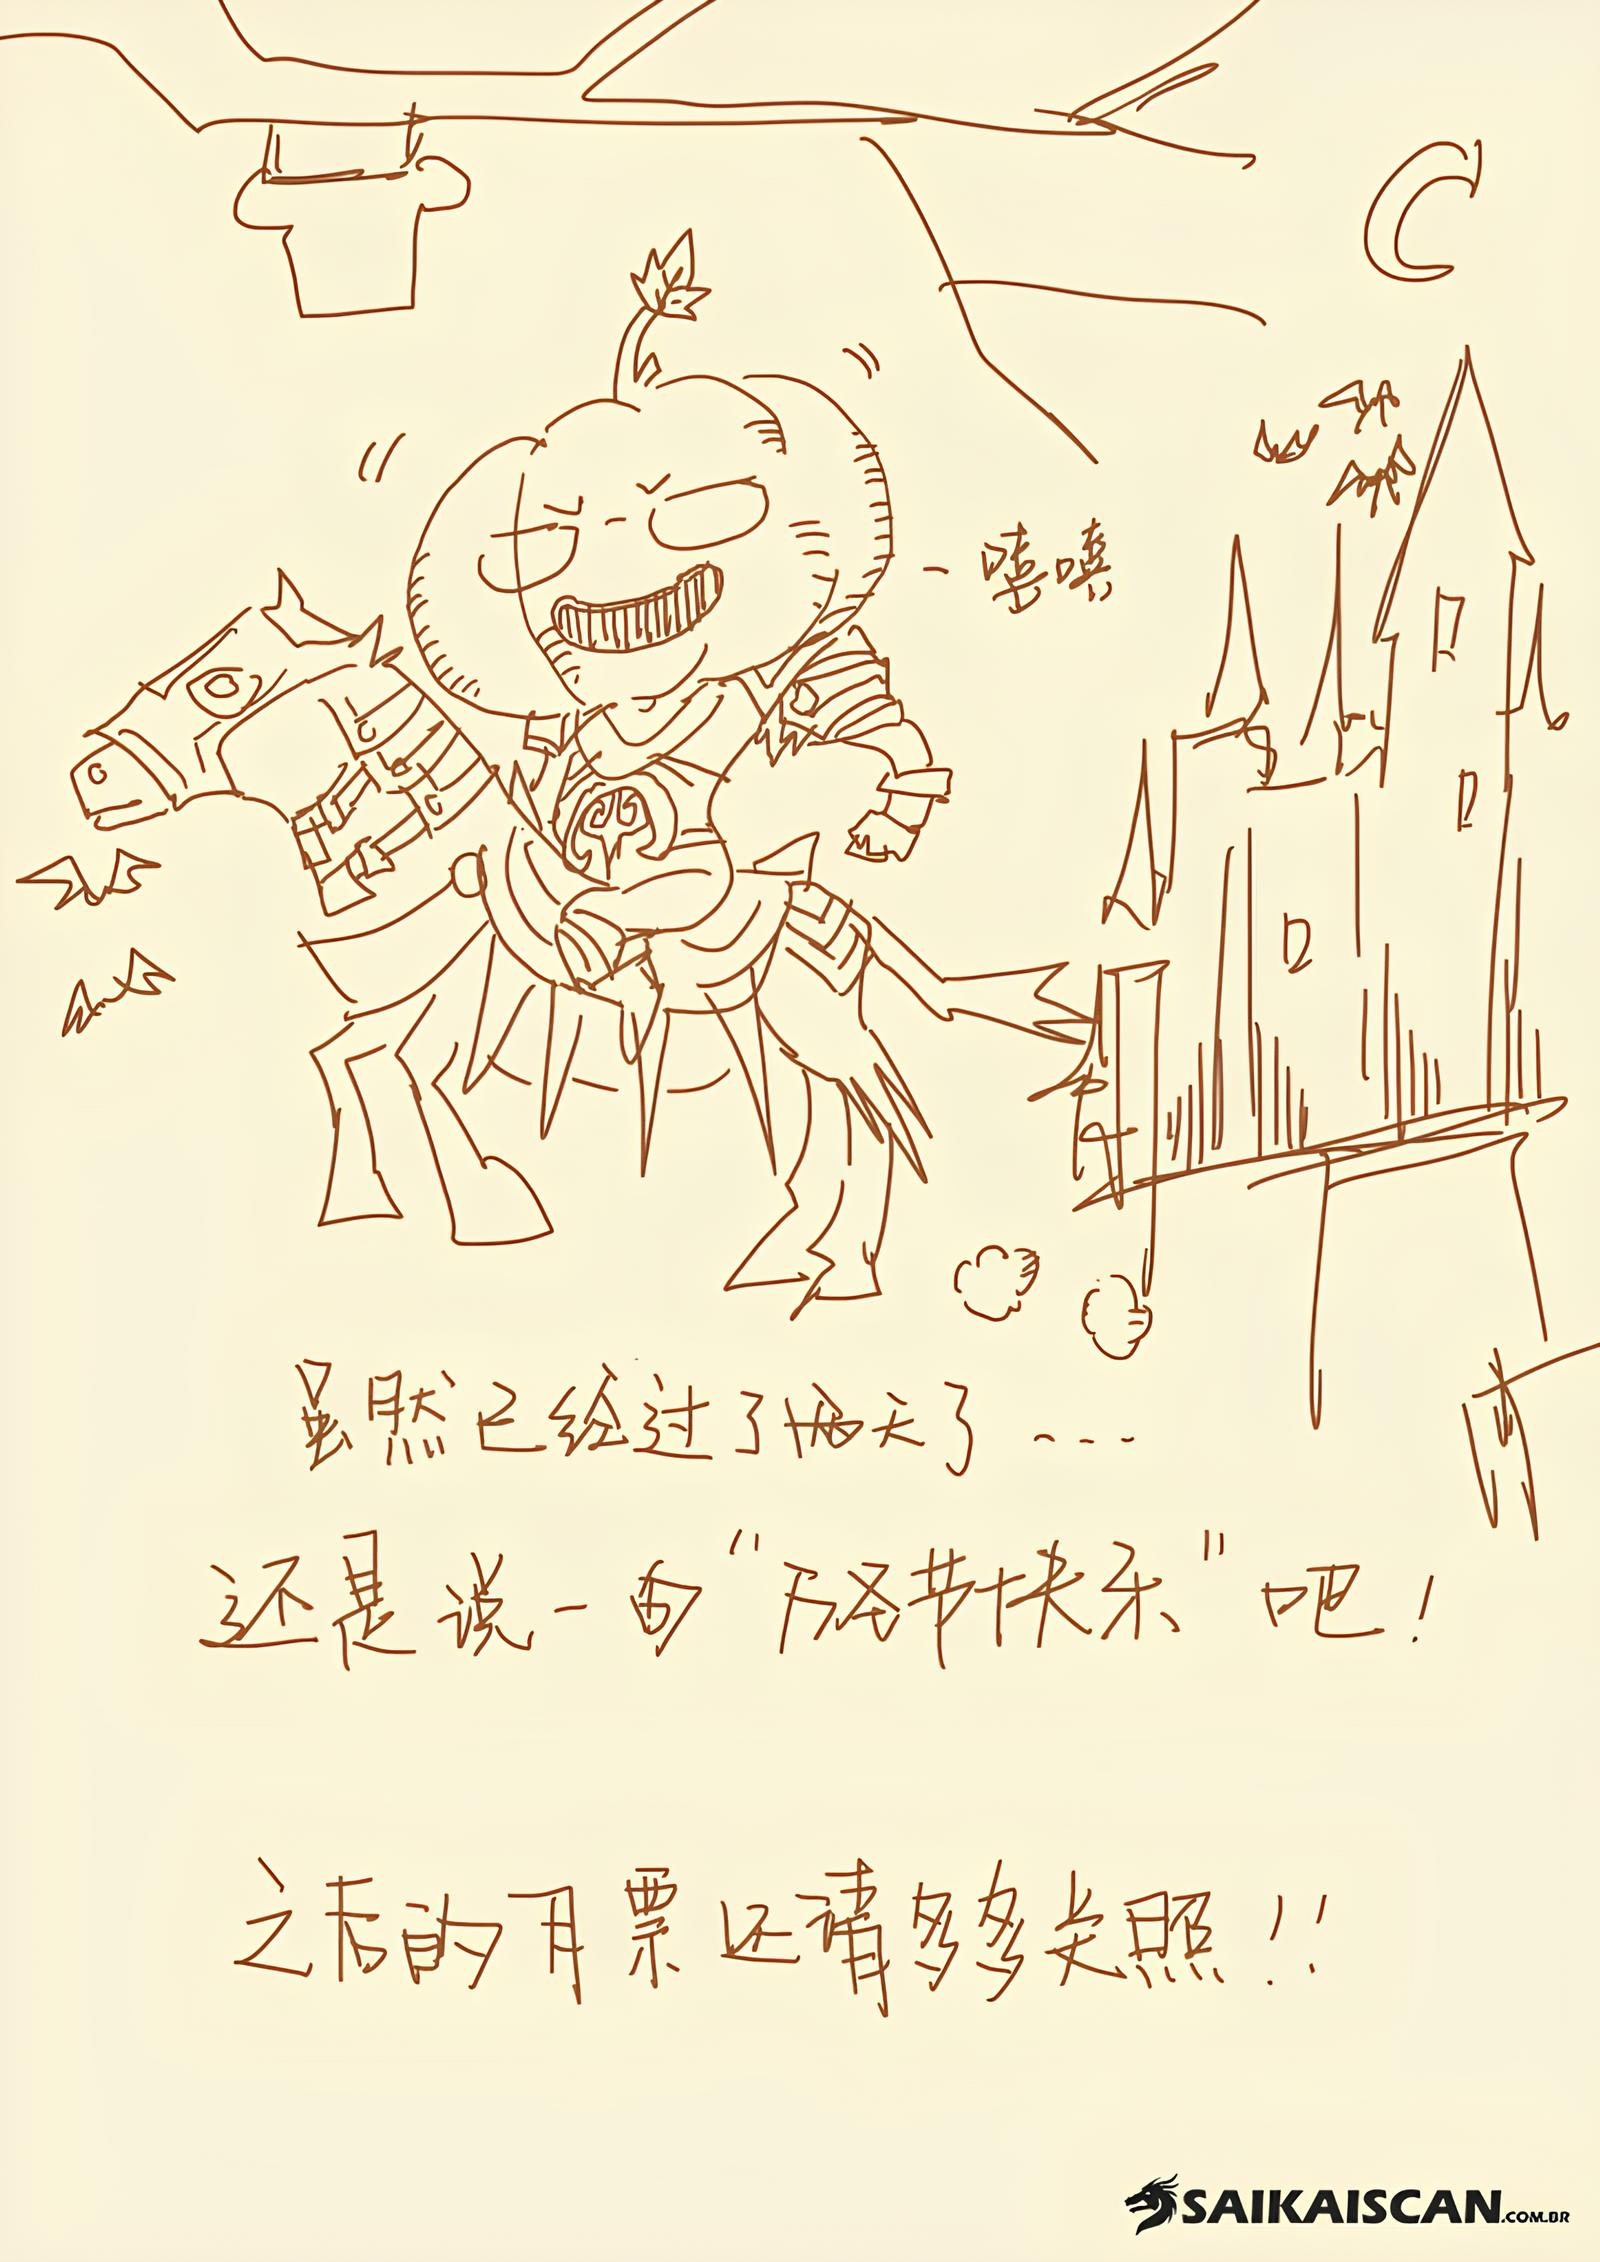 嘻嘻
虽然已经过了两天了...
还是说一句“万圣节快乐”吧!
之后的月票还请多多关照!!
SAIKAISCAN.COM.BR